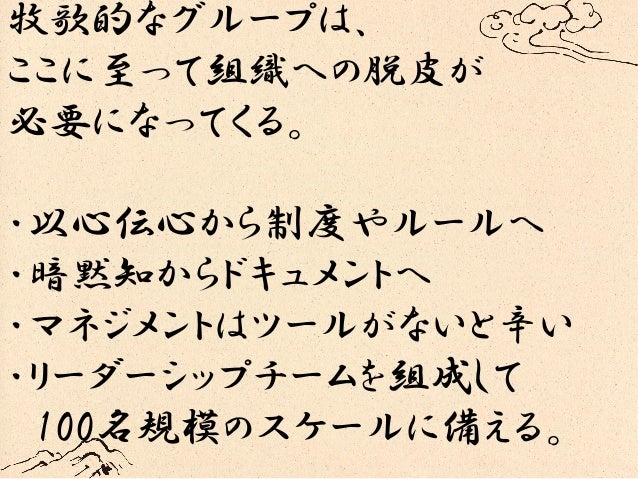 牧歌的なグループは、
ここに至って組織への脱皮が
必要になってくる。
・以心伝心から制度やルールへ
・暗黙知からドキュメントへ
・マネジメントはツールがないと辛い
・リーダーシップチームを組成して
100名規模のスケールに備える。